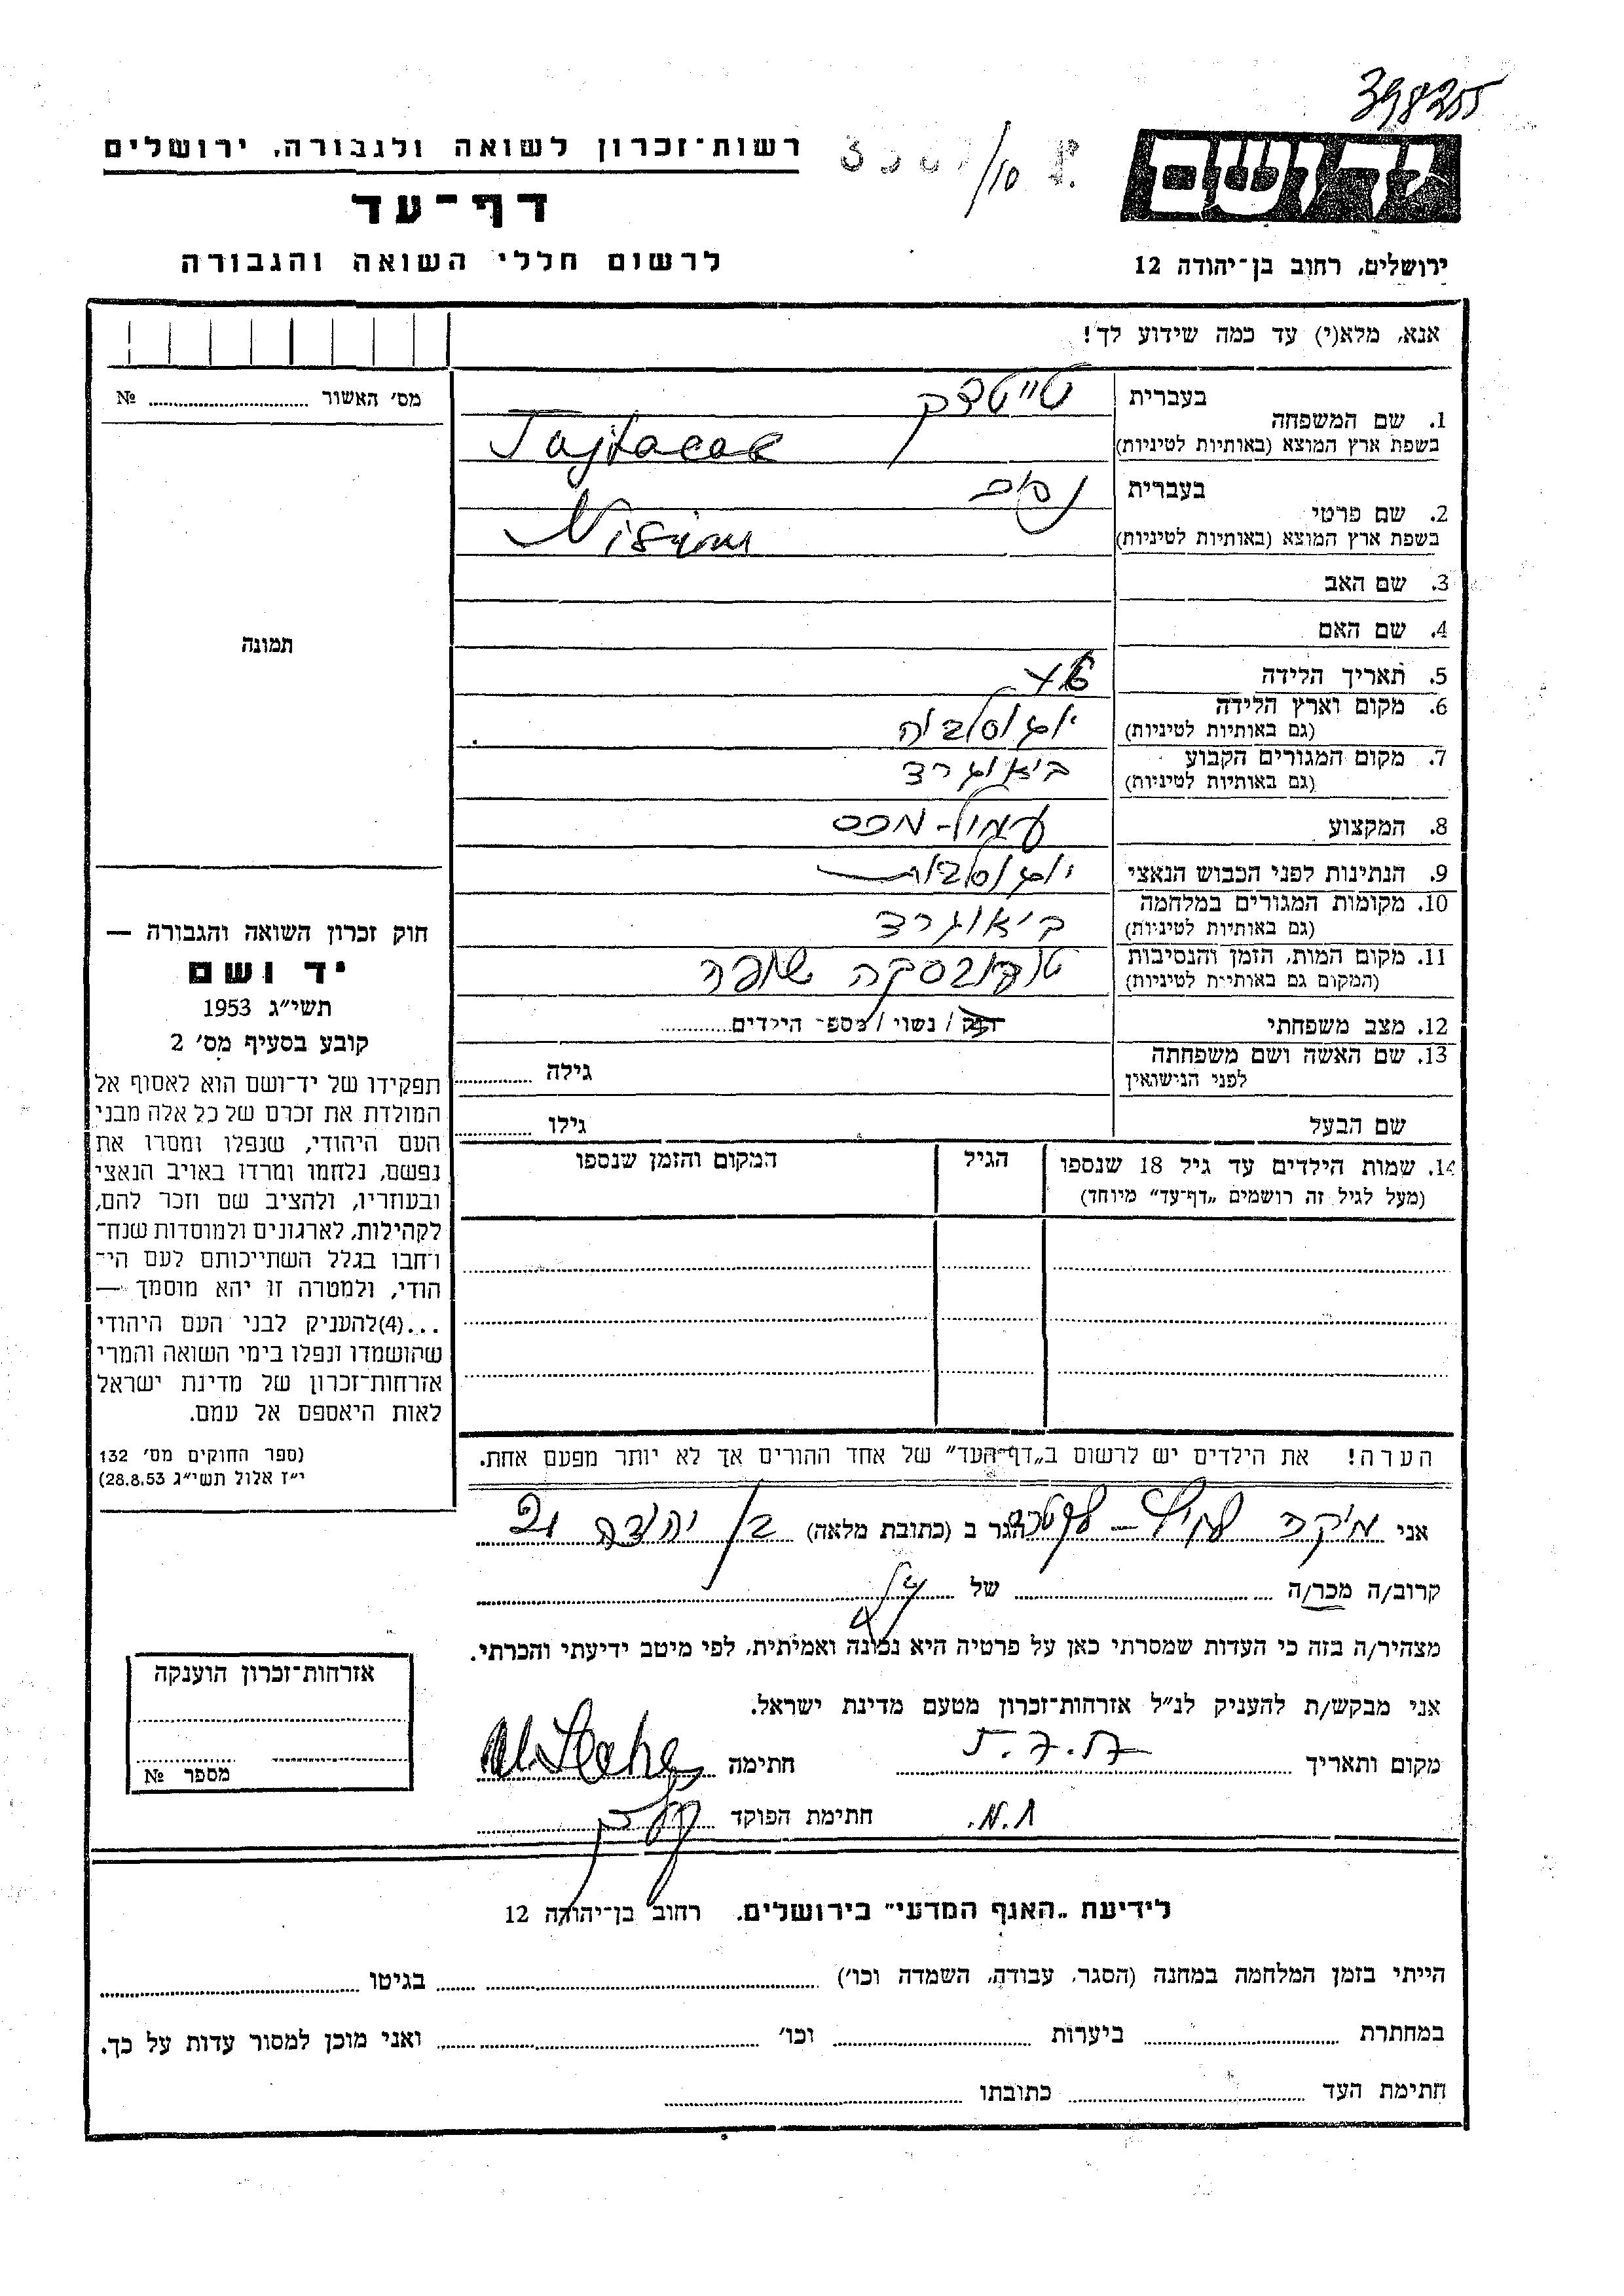 398255
רשות־זכרון לשואה ולגבורה, ירושלים
דף־עד
לרשום חללי השואה והגבורה
/10
יד ושם
ירושלים, רחוב בן־יהודה 12
אנא, מלא(י) עד כמה שידוע לך!
מס׳ האשור № 
בעברית
1. שם המשפחה
בשפת ארץ המוצא (באותיות לטיניות)
טייטצק
Tajtacak
בעברית
2. שם פרטי
בשפת ארץ המוצא (באותיות לטיניות)
נסים
Nisim
3. שם האב
4. שם האם
תמונה
5. תאריך הלידה
6. מקום וארץ הלידה
(גם באותיות לטיניות)
יוגוסלביה
7. מקום המגורים הקבוע
(גם באותיות לטיניות)
ביאוגרד
8. המקצוע
עמיל-מכס
9. הנתינות לפני הכבוש הנאצי
יוגוסלבית
10. מקומות המגורים במלחמה
(גם באותיות לטיניות)
ביאוגרד
11. מקום המות, הזמן והנסיבות
(המקום גם באותיות לטיניות)
טופובסקה שופה
12. מצב משפחתי
רווק / נשוי / מספר הילדים
13. שם האשה ושם משפחתה
לפני הנישואין
גילה
שם הבעל
גילו
14. שמות הילדים עד גיל 18 שנספו
(מעל לגיל זה רושמים „דף־עד״ מיוחד)
הגיל
המקום והזמן שנספו
חוק זכרון השואה והגבורה —
יד ושם
תשי״ג 1953
קובע בסעיף מס׳ 2
תפקידו של יד־ושם הוא לאסוף אל
המולדת את זכרם של כל אלה מבני
העם היהודי, שנפלו ומסרו את
נפשם, נלחמו ומרדו באויב הנאצי
ובעוזריו, ולהציב שם וזכר להם,
לקהילות, לארגונים ולמוסדות שנח־
רבו בגלל השתייכותם לעם הי־
הודי, ולמטרה זו יהא מוסמך —
...(4)להעניק לבני העם היהודי
שהושמדו ונפלו בימי השואה והמרי
אזרחות־זכרון של מדינת ישראל
לאות היאספם אל עמם.
(ספר החוקים מס׳ 132
י״ז אלול תשי״ג 28.8.53)
הערה! את הילדים יש לרשום ב„דף־העד״ של אחד ההורים אך לא יותר מפעם אחת.
אני מיקה הגר ב (כתובת מלאה) בן יהודה
קרוב/ה מכר/ה של
מצהיר/ה בזה כי העדות שמסרתי כאן על פרטיה היא נכונה ואמיתית, לפי מיטב ידיעתי והכרתי.
אני מבקש/ת להעניק לנ״ל אזרחות־זכרון מטעם מדינת ישראל.
מקום ותאריך חתימה
חתימת הפוקד
אזרחות־זכרון הוענקה
מספר №
לידיעת „האגף המדעי״ בירושלים, רחוב בן־יהודה 12
הייתי בזמן המלחמה במחנה (הסגר, עבודה, השמדה וכו׳) בגיטו
במחתרת ביערות וכו׳ ואני מוכן למסור עדות על כך.
חתימת העד כתובתו